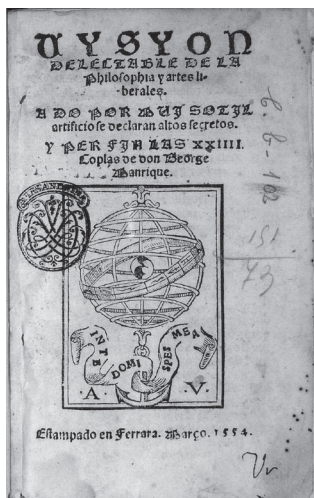 VYSYON
DELECTABLE DE LA
Philosophia y artes li-
berales.
A DO POR MUJ SOTJL
artificio se declaran altos secretos.
Y PER FJN LAS XXIIII.
Coplas de don George
Manrique.
IN TE DOMI SPES MEA
A. V.
Estampado en Ferrara. Março. 1554.
151
73